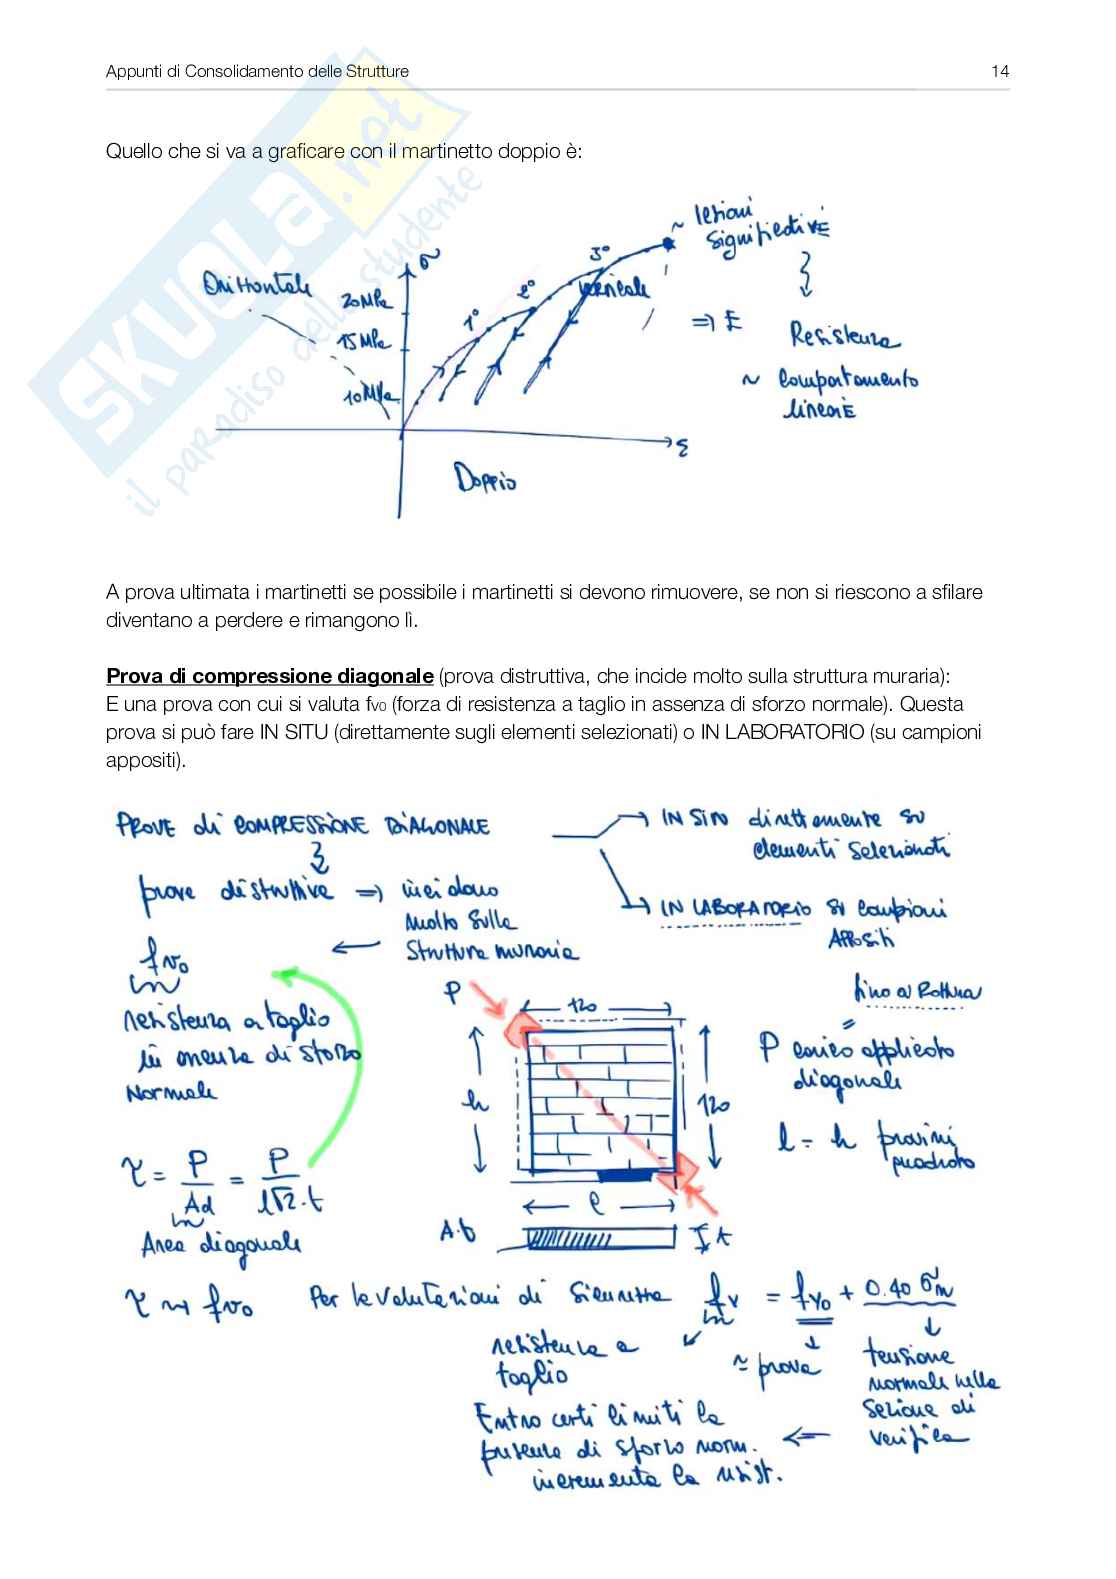 Appunti di Consolidamento delle Strutture 14
SKUOLA.net
il paradiso dello studente
Quello che si va a graficare con il martinetto doppio è:
~ lesioni
significative
σ
3°
Orizzontale
20 MPa
2°
verticale
1°
15 MPa
=> E
Resistenza
10 MPa
~ comportamento
lineare
ε
Doppio
A prova ultimata i martinetti se possibile i martinetti si devono rimuovere, se non si riescono a sfilare
diventano a perdere e rimangono lì.
Prova di compressione diagonale (prova distruttiva, che incide molto sulla struttura muraria):
E una prova con cui si valuta fv0 (forza di resistenza a taglio in assenza di sforzo normale). Questa
prova si può fare IN SITU (direttamente sugli elementi selezionati) o IN LABORATORIO (su campioni
appositi).
PROVE di COMPRESSIONE DIAGONALE
IN SITO direttamente su
elementi selezionati
prove distruttive => incidono
molto sulla
struttura muraria
IN LABORATORIO su campioni
appositi
fv0
resistenza a taglio
in assenza di sforzo
Normale
P
120
h
120
fino a Rottura
P carico applicato
diagonale
l = h provini
quadrato
τ = P/Ad = P/l√2·t
Area diagonale
l
t
τ → fv0 Per le valutazioni di sicurezza fv = fv0 + 0.40 σm
resistenza a
taglio
≈ prova
tensione
normale nella
sezione di
verifica
Entro certi limiti la
presenza di sforzo norm.
incrementa la resist.